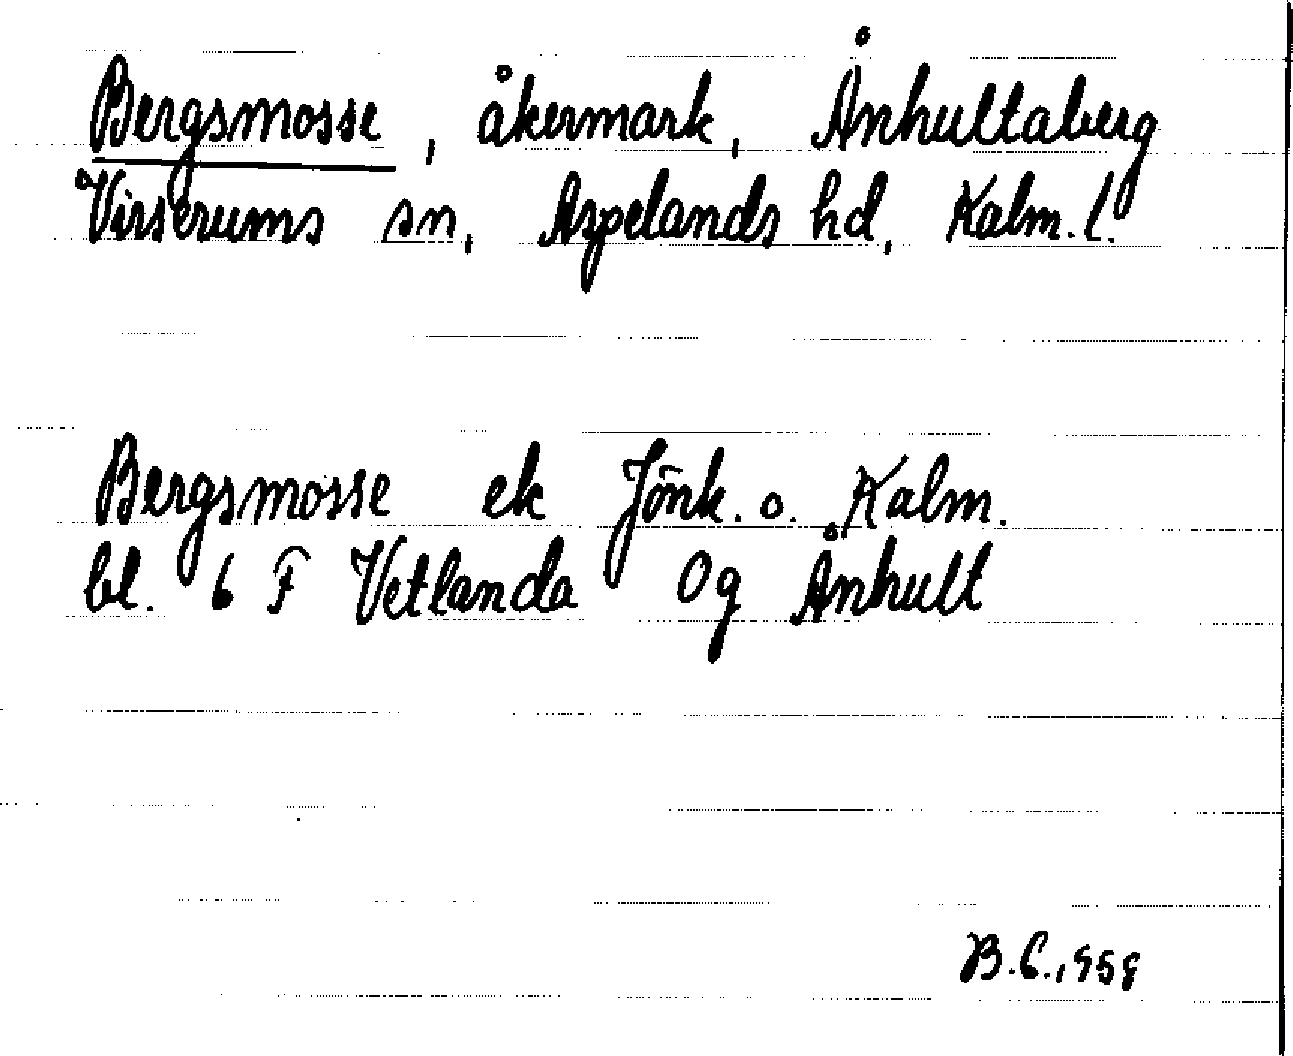 Bergsmosse, åkermark, Ånhultaberg
Virserums sn, Aspelands hd, Kalm. l.
Bergsmosse ek Jönk. o. Kalm.
bl. 6 F Vetlanda 0g Ånhult
B.C.